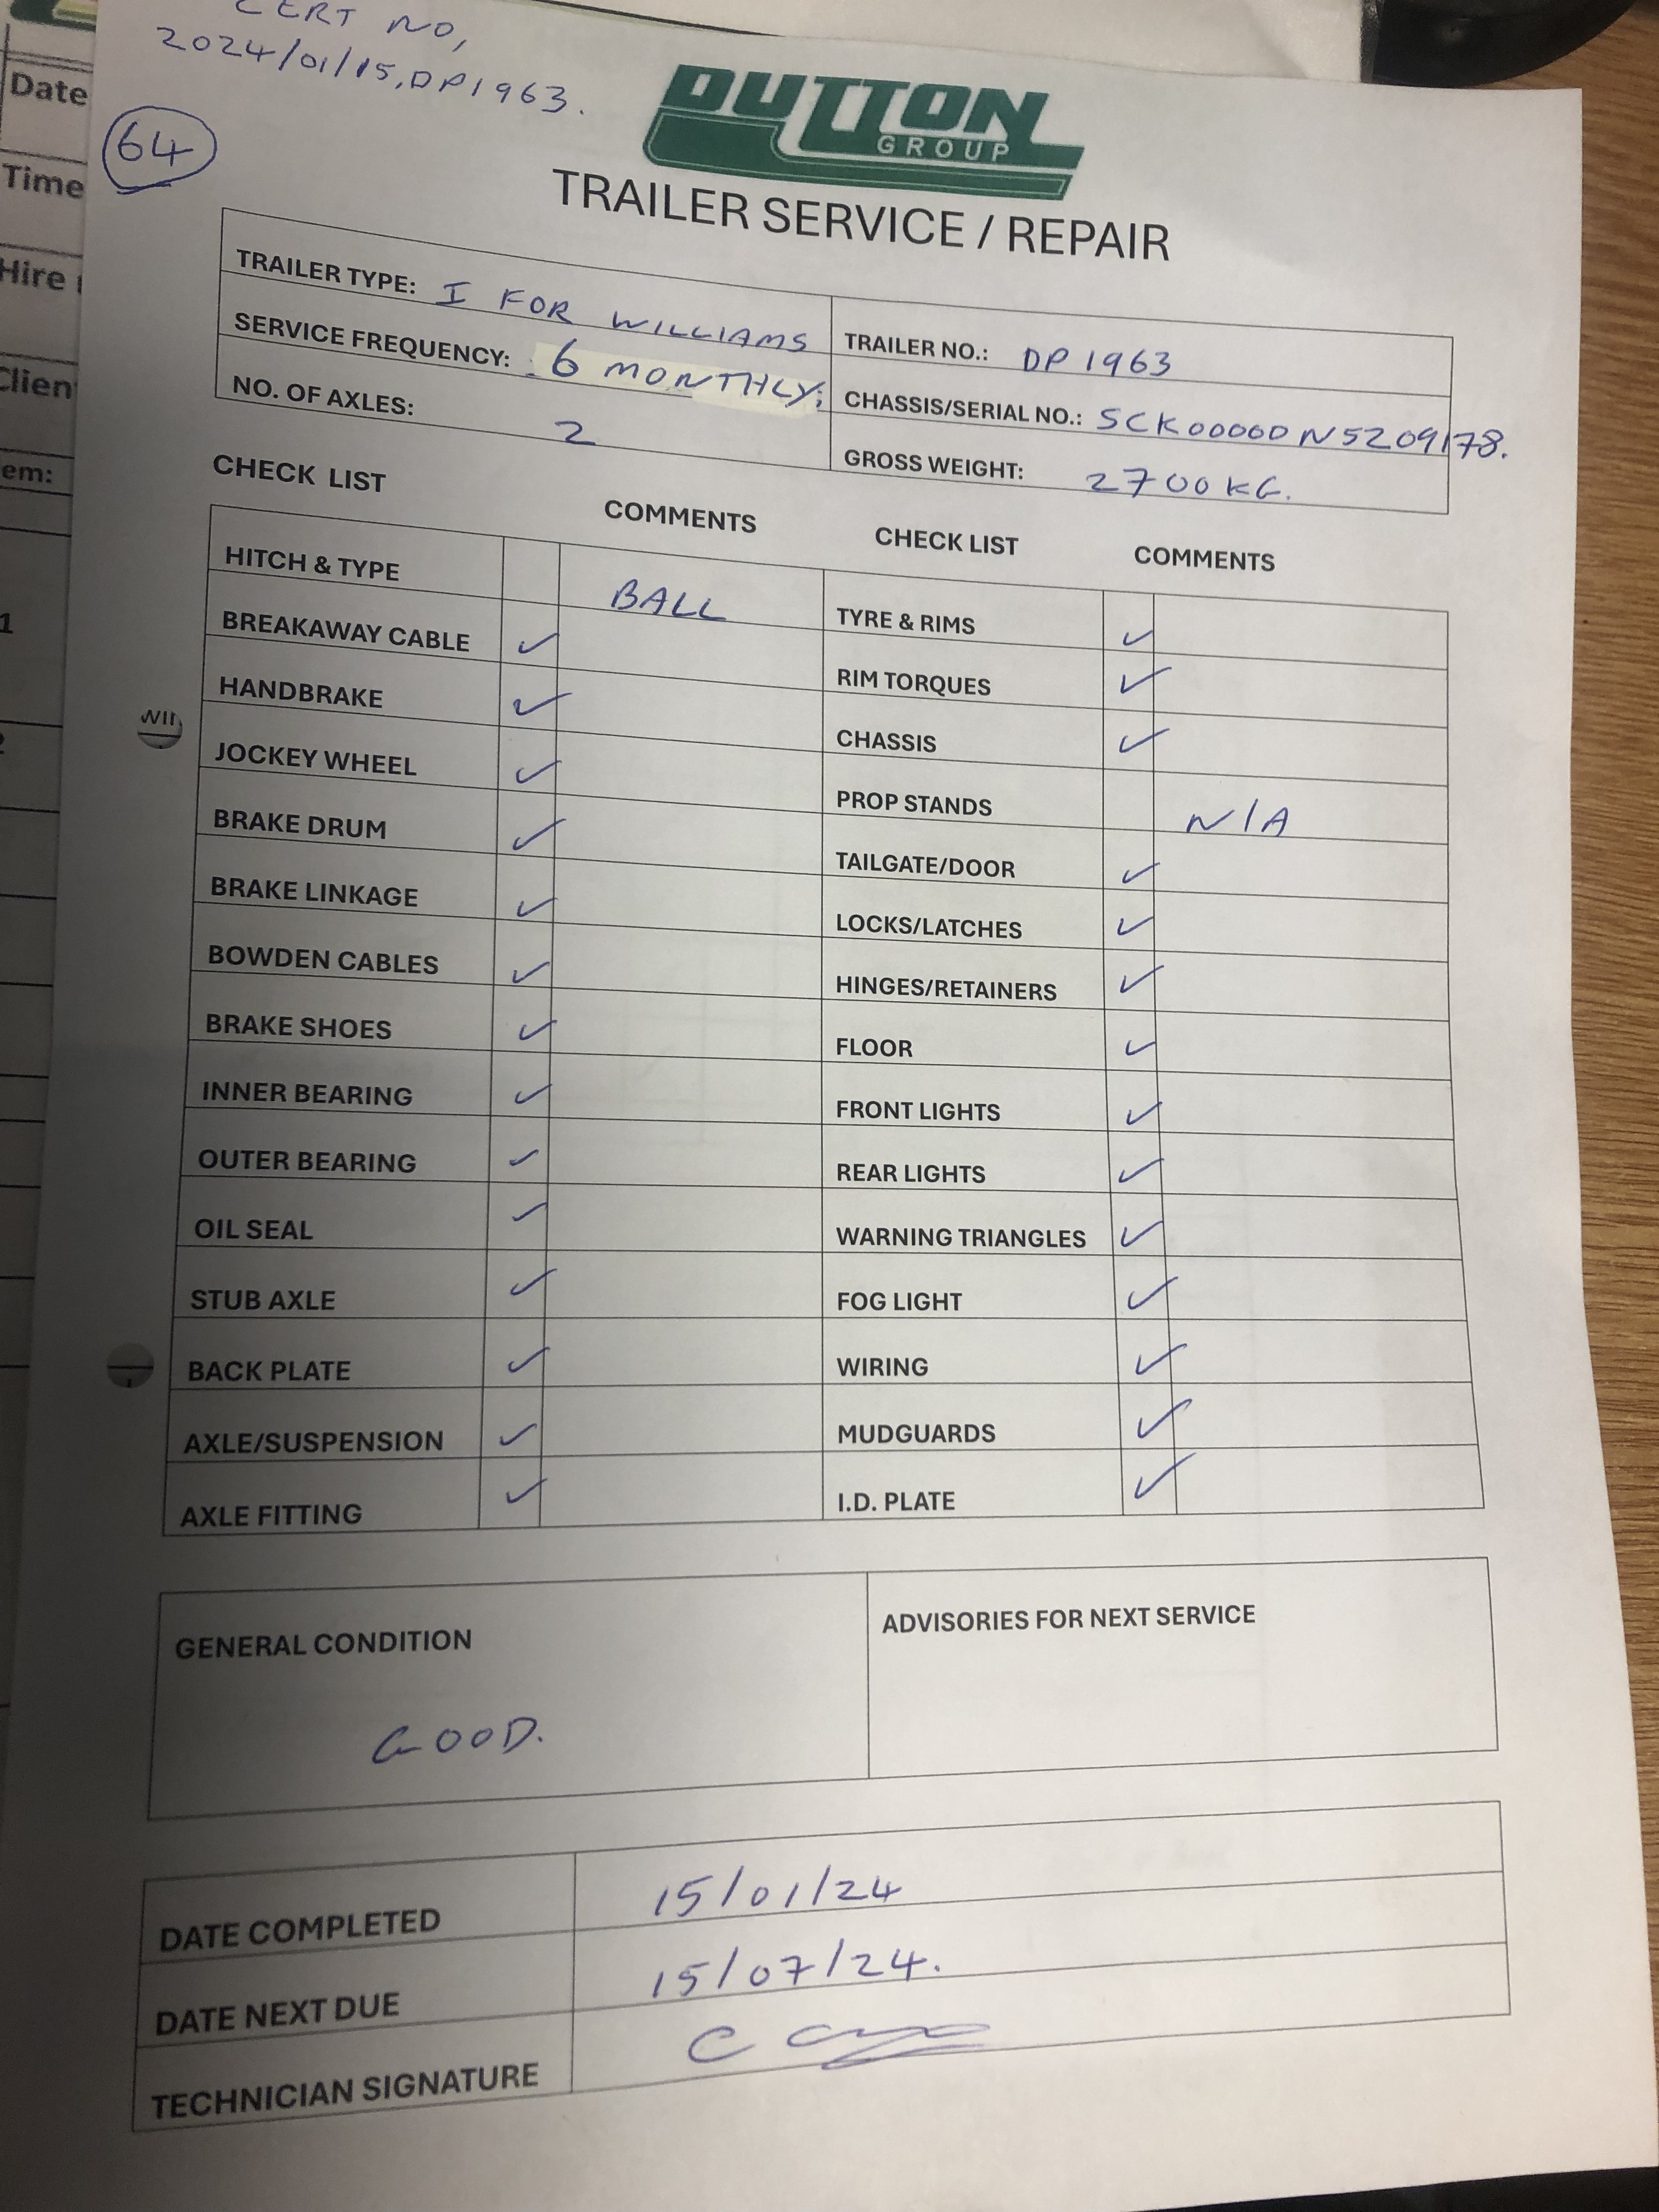 CERT NO,
2024/01/15,DP1963.
64
DUTTON
GROUP
TRAILER SERVICE / REPAIR
TRAILER TYPE: I FOR WILLIAMS
TRAILER NO.: DP 1963
SERVICE FREQUENCY: 6 MONTHLY;
CHASSIS/SERIAL NO.: SCK00000DN5209178.
NO. OF AXLES: 2
GROSS WEIGHT: 2700KG.
CHECK LIST COMMENTS CHECK LIST COMMENTS
HITCH & TYPE BALL
TYRE & RIMS ✓
BREAKAWAY CABLE ✓
RIM TORQUES ✓
HANDBRAKE ✓
CHASSIS ✓
JOCKEY WHEEL ✓
PROP STANDS N/A
BRAKE DRUM ✓
TAILGATE/DOOR ✓
BRAKE LINKAGE ✓
LOCKS/LATCHES ✓
BOWDEN CABLES ✓
HINGES/RETAINERS ✓
BRAKE SHOES ✓
FLOOR ✓
INNER BEARING ✓
FRONT LIGHTS ✓
OUTER BEARING ✓
REAR LIGHTS ✓
OIL SEAL ✓
WARNING TRIANGLES ✓
STUB AXLE ✓
FOG LIGHT ✓
BACK PLATE ✓
WIRING ✓
AXLE/SUSPENSION ✓
MUDGUARDS ✓
AXLE FITTING ✓
I.D. PLATE ✓
GENERAL CONDITION
GOOD.
ADVISORIES FOR NEXT SERVICE
DATE COMPLETED 15/01/24
DATE NEXT DUE 15/07/24.
TECHNICIAN SIGNATURE
Date
Time
Hire
Clien
em:
1
2